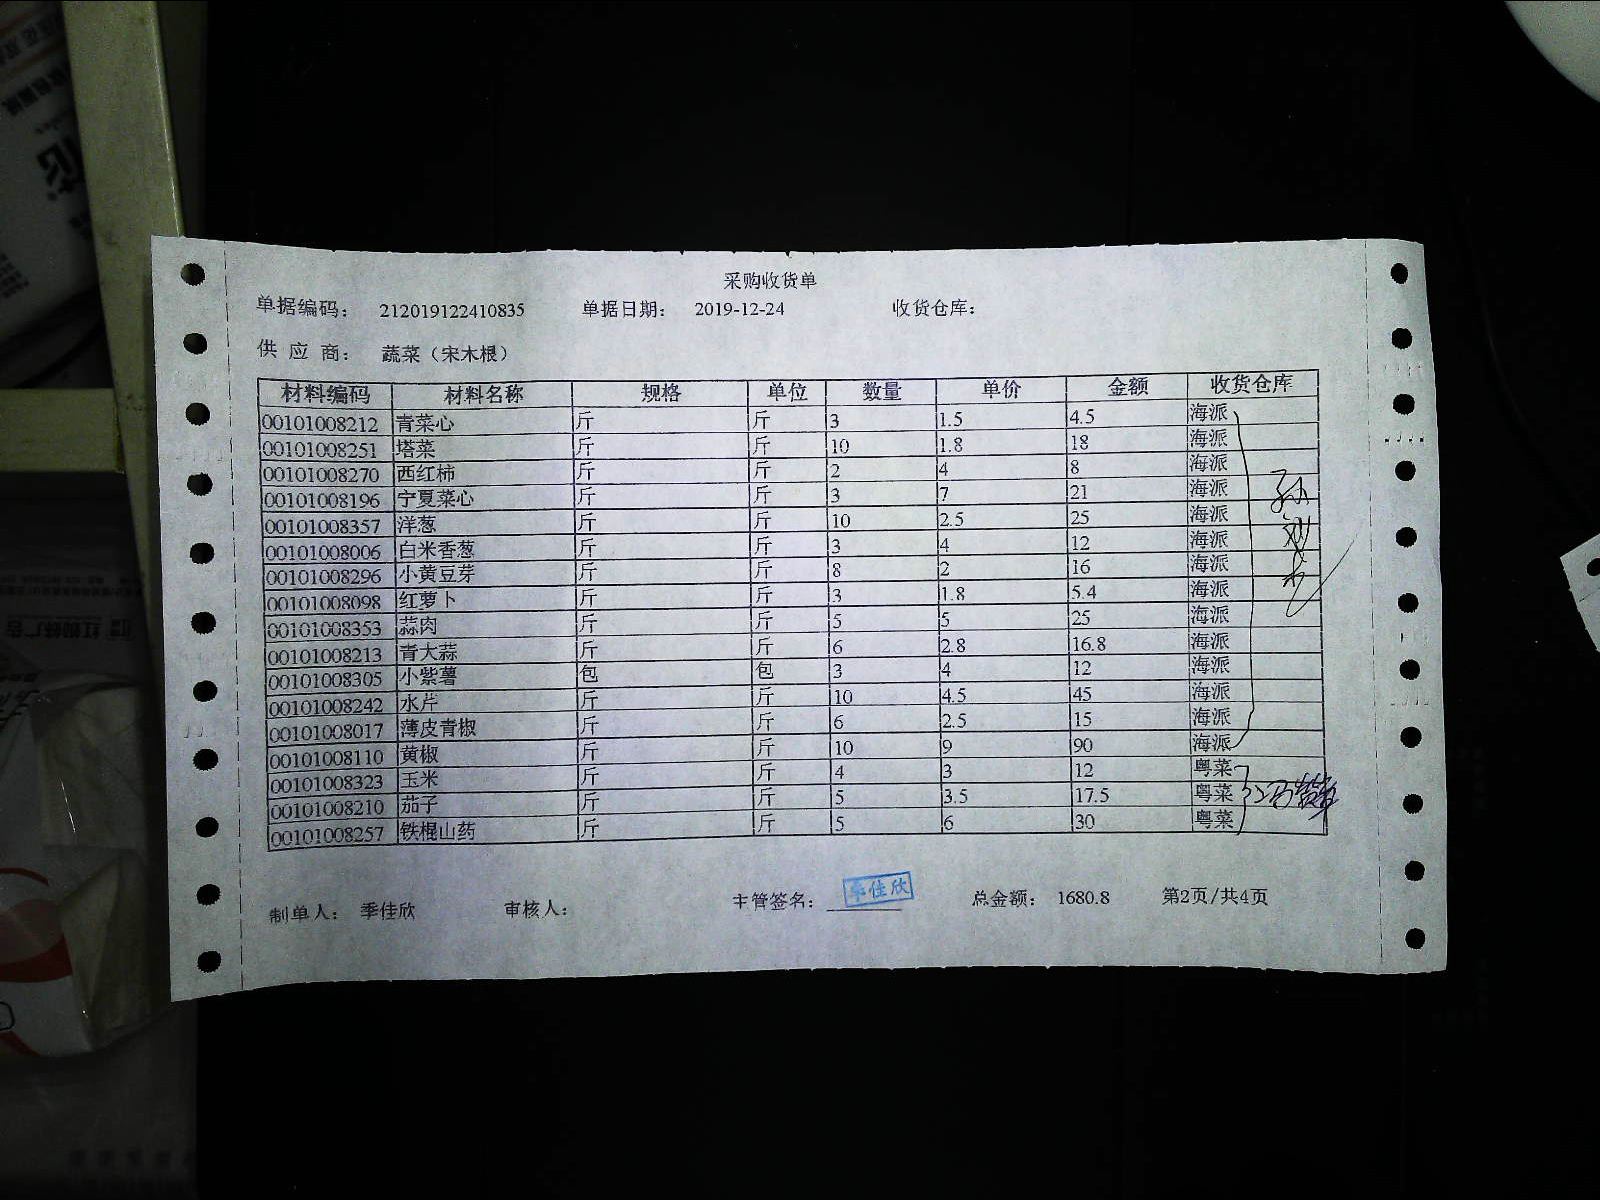 采购收货单
单据编码： 212019122410835 单据日期： 2019-12-24 收货仓库：
供 应 商： 蔬菜（宋木根）
材料编码 材料名称 规格 单位 数量 单价 金额 收货仓库
00101008212 青菜心 斤 斤 3 1.5 4.5 海派
00101008251 塔菜 斤 斤 10 1.8 18 海派
00101008270 西红柿 斤 斤 2 4 8 海派
00101008196 宁夏菜心 斤 斤 3 7 21 海派
00101008357 洋葱 斤 斤 10 2.5 25 海派
00101008006 白米香葱 斤 斤 3 4 12 海派
00101008296 小黄豆芽 斤 斤 8 2 16 海派
00101008098 红萝卜 斤 斤 3 1.8 5.4 海派
00101008353 蒜肉 斤 斤 5 5 25 海派
00101008213 青大蒜 斤 斤 6 2.8 16.8 海派
00101008305 小紫薯 包 包 3 4 12 海派
00101008242 水芹 斤 斤 10 4.5 45 海派
00101008017 薄皮青椒 斤 斤 6 2.5 15 海派
00101008110 黄椒 斤 斤 10 9 90 海派
00101008323 玉米 斤 斤 4 3 12 粤菜
00101008210 茄子 斤 斤 5 3.5 17.5 粤菜
00101008257 铁棍山药 斤 斤 5 6 30 粤菜
制单人： 季佳欣 审核人： 主管签名： 季佳欣 总金额： 1680.8 第2页/共4页